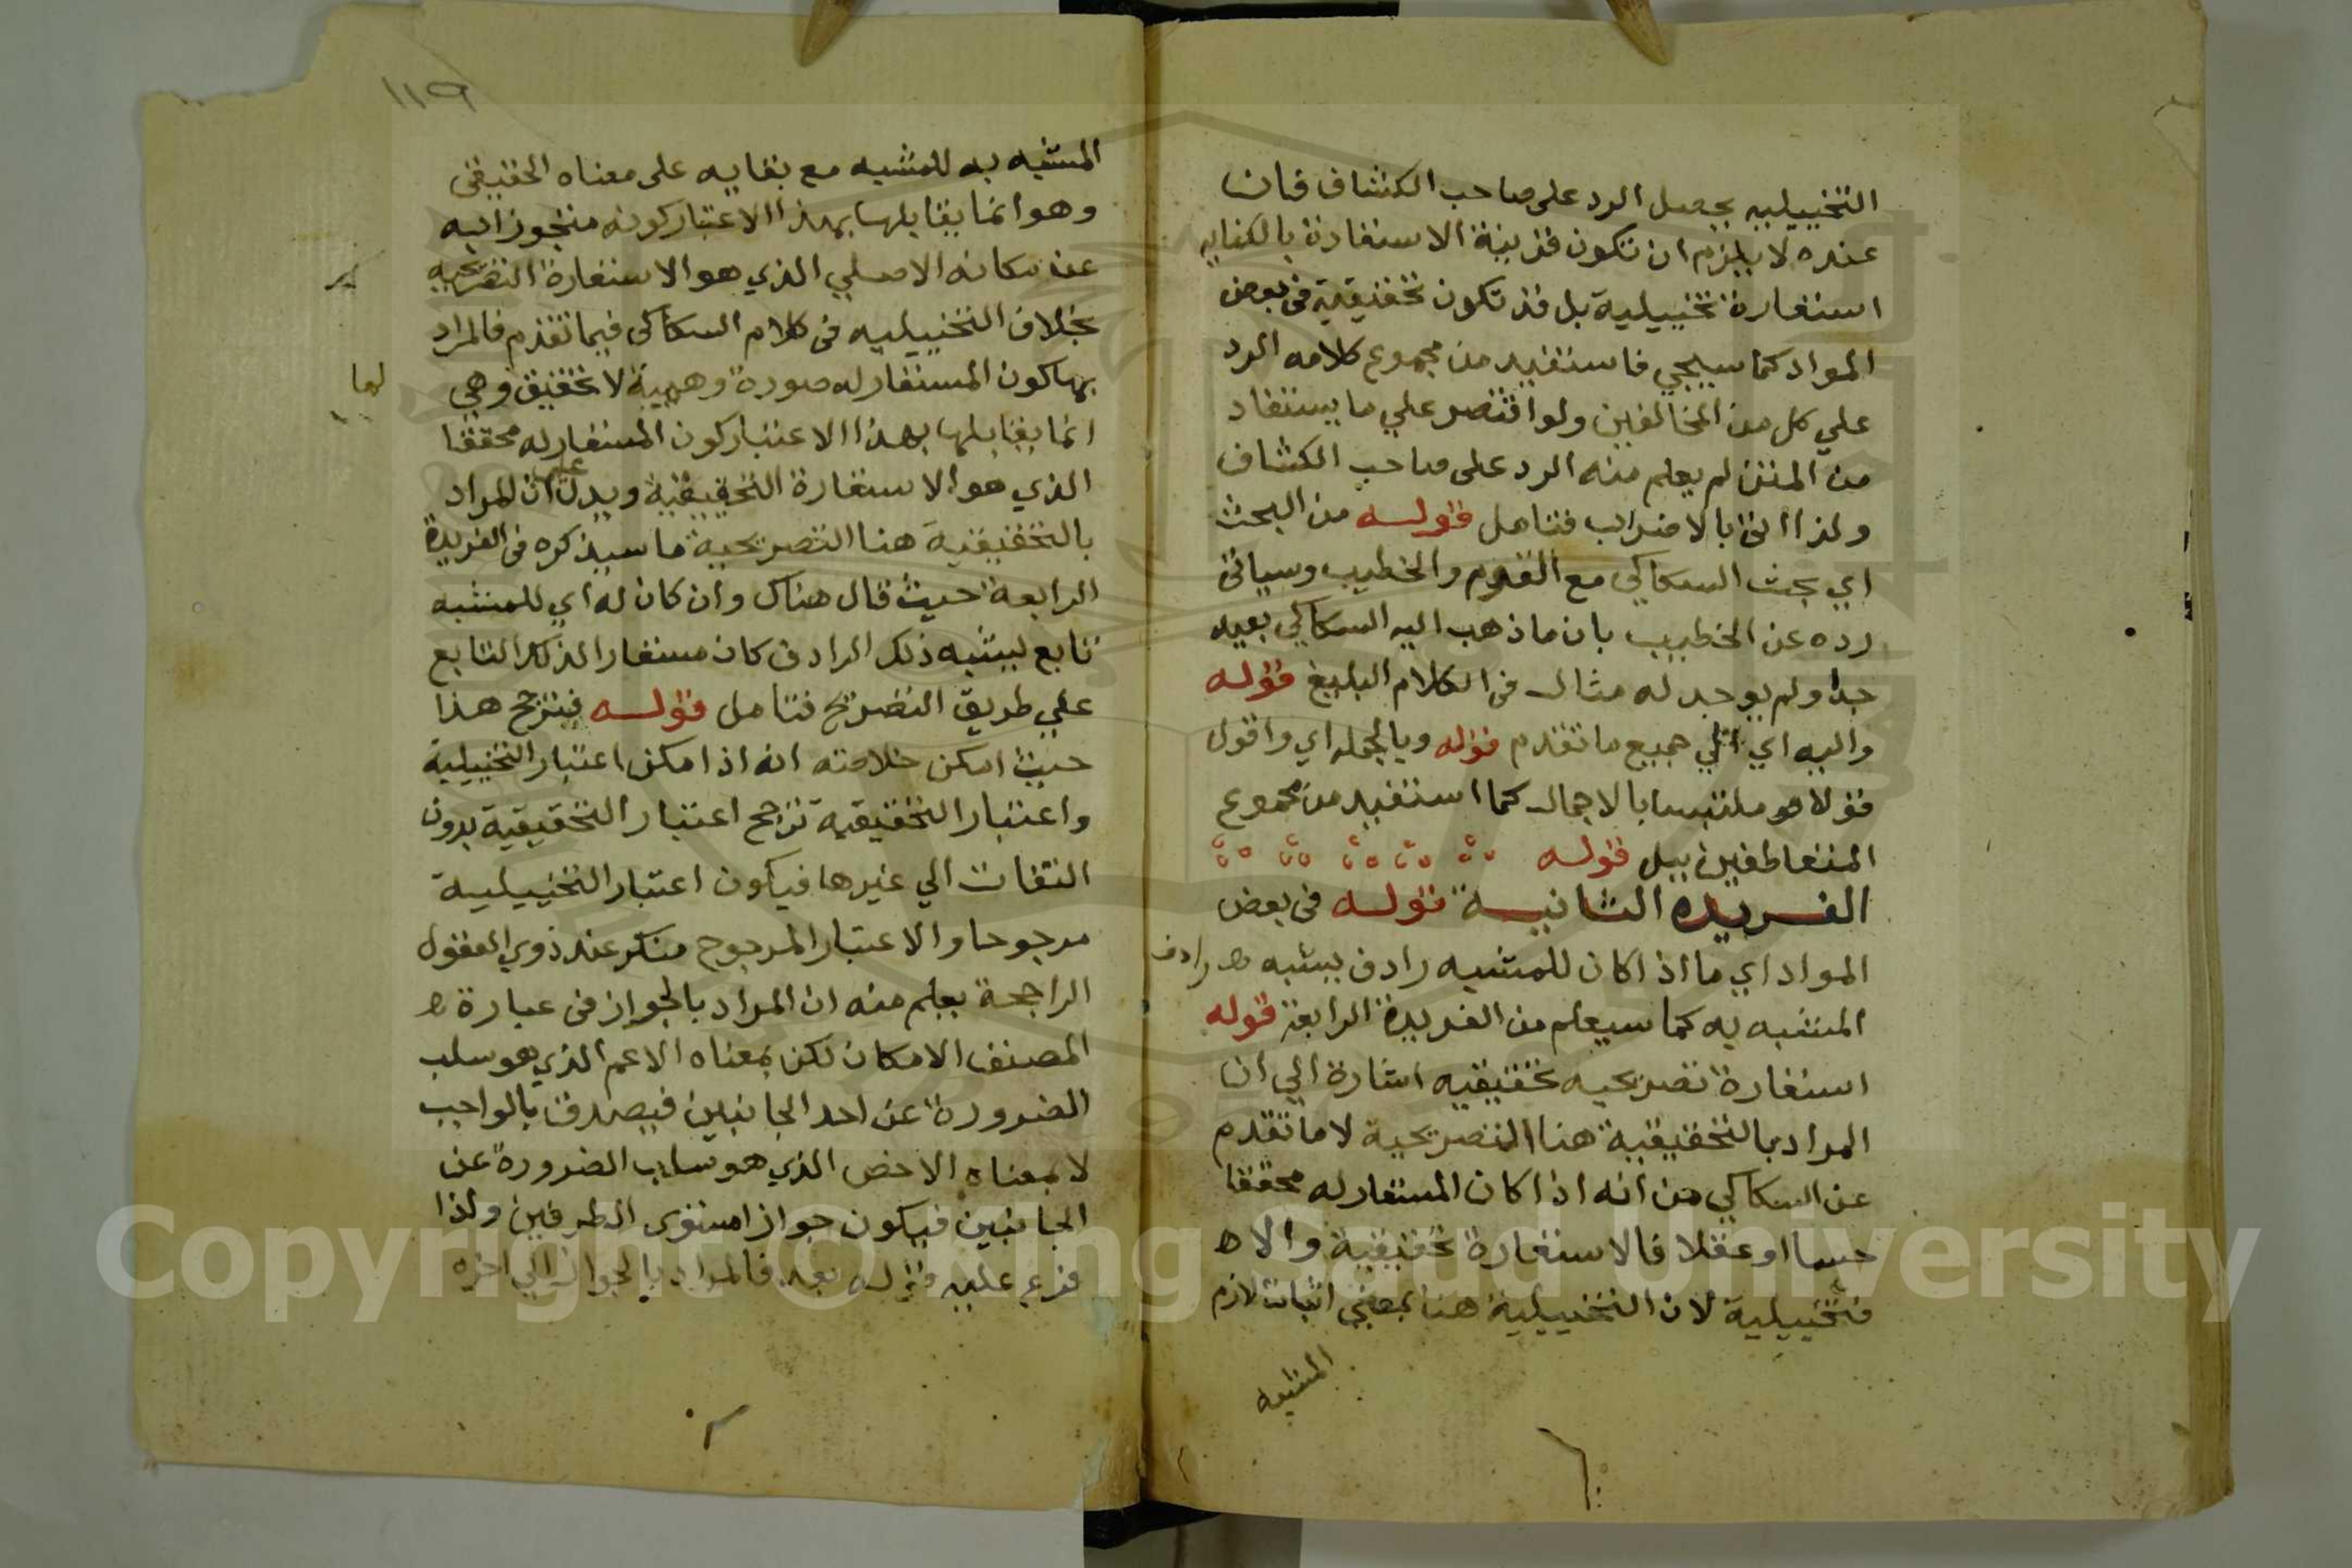 التخييليه يحصل الرد على صاحب الكشاف فان
عنده لا يلزم ان تكون قرينة الاستعارة بالكنايه
استعارة تخييلية بل قد تكون تحقيقية فى بعض
المواد كما سيجي فاستفيد من مجموع كلامه الرد
علي كل من المخالفين ولو اقتصر علي ما يستفاد
من المتن لم يعلم منه الرد على صاحب الكشاف
ولذا اتى بالاضراب فتامل قوله من البحث
اي بحث السكاكي مع القوم والخطيب وسياتى
رده عن الخطيب بان ما ذهب اليه السكاكي بعيد
جدا ولم يوجد له مثال فى الكلام البليغ قوله
واليه اي الي جميع ما تقدم قوله وبالجمله اي واقول
قولا هو ملتبسا بالاجمال كما استفيد من مجموع
المتعاطفين بيل قوله
الفريده الثانية قوله فى بعض
المواد اي ما اذا كان للمشبه رادف يشبه رادف
المشبه به كما سيعلم من الفريدة الرابعة قوله
استعارة تصريحيه تحقيقيه اشارة الي ان
المراد بالتحقيقية هنا التصريحية لا ما تقدم
عن السكاكي من انه اذا كان المستعار له محققا
حسا او عقلا فالاستعارة تحقيقية والا
فتخييلية لان التخييلية هنا بمعني اثبات لازم
المشبه
١١٩
المشبه به للمشبه مع بقايه على معناه الحقيقى
وهو انما يقابلها بهذا الاعتبار كونه متجوزا به
عن مكانه الاصلي الذي هو الاستعارة التصريحيه
بخلاف التخييليه فى كلام السكاكى فيما تقدم فالمراد
بها كون المستعار له صورة وهمية لا تحقيق لها وهي
انما يقابلها بهذا الاعتبار كون المستعار له محققا
الذي هو الاستعارة التحقيقية ويدل على ان المراد
بالتحقيقية هنا التصريحية ما سيذكره فى الفريدة
الرابعة حيث قال هناك وان كان له اي للمشبه
تابع يشبه ذلك الرادف كان مستعارا لذلك التابع
علي طريق التصريح فتامل قوله فيترجح هذا
حيث امكن خلاصته انه اذا مكن اعتبار التخييلية
واعتبار التحقيقية ترجح اعتبار التحقيقية بدون
التفات الي غيرها فيكون اعتبار التخييلية
مرجوحا والاعتبار المرجوح منكر عند ذوي العقول
الراجحة يعلم منه ان المراد بالجواز فى عبارة
المصنف الامكان لكن بمعناه الاعم الذي هو سلب
الضرورة عن احد الجانبين فيصدق بالواجب
لا بمعناه الاخص الذي هو سلب الضرورة عن
الجانبين فيكون جواز امستوى الطرفين ولذا
فرع عليه قوله بعد فالمراد بالجواز الي اخره
Copyright © King Saud University